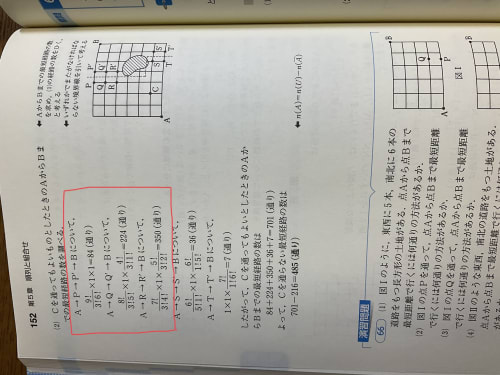 152 第5章 順列と組合せ
(2) Cを通ってもよいものとしたときのAからBま
での最短経路の数を調べる。
A→P→P'→Bについて,
9!/3!6!×1×1=84(通り)
A→Q→Q'→Bについて,
8!/3!5!×1×4!/3!1!=224(通り)
A→R→R'→Bについて,
7!/3!4!×1×5!/3!2!=350(通り)
A→S→S'→Bについて,
6!/5!1!×1×6!/1!5!=36(通り)
A→T→T'→Bについて,
1×1×7!/1!6!=7(通り)
したがって,Cを通ってもよいときのAか
らBまでの最短経路の数は
84+224+350+36+7=701(通り)
よって,Cを通らない最短経路の数は
701-216=485(通り)
←AからBまでの最短経路の数
を求め,(1)の経路の数をひく,
と考える
←いずれかでまたがなければな
らない境界線を引いて考える
B
P P'
Q Q'
R R'
S S'
T T'
C
A
←n(A)=n(U)-n(A)
演習問題
66 (1) 図Ⅰのように,東西に5本,南北に6本の
道路をもつ長方形の土地がある。点Aから点Bまで
最短距離で行くには何通りの方法があるか。
(2) 図Ⅰの点Pを通って,点Aから点Bまで最短距離
で行くには何通りの方法があるか。
(3) 図Ⅰの点Qを通って,点Aから点Bまで最短距離
で行くには何通りの方法があるか。
(4) 図Ⅱのような東西,南北の道路をもつ土地がある。
B
Q
P
A
図Ⅰ